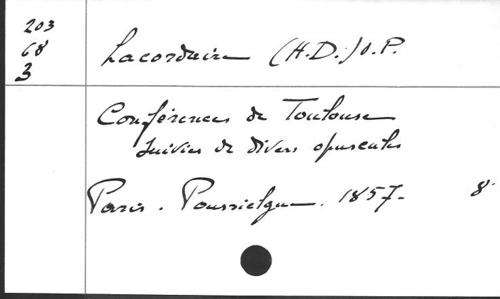 203
68
3
Lacordaire (H.D.) O.P.
Conférences de Toulouse
suivies de divers opuscules
Paris. Poussielgue. 1857- 8°